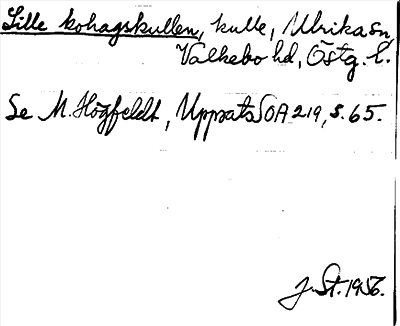 Lille kohagskullen, kulle, Ulrika sn,
Valkebo hd, Östg. l.
Se M. Högfeldt, Uppsats SOA 219, s. 65.
J. St. 1956.